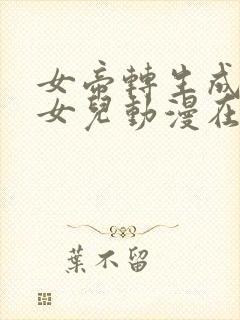 女帝轉生成
女兒動漫在
葉不留